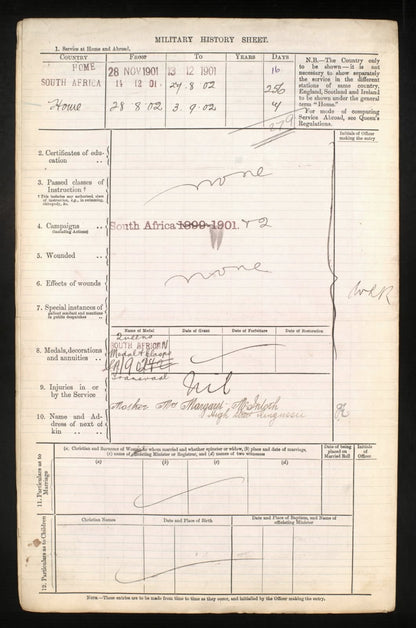 MILITARY HISTORY SHEET.
1. Service at Home and Abroad.
COUNTRY FROM TO YEARS DAYS
HOME 28 NOV 1901 13 12 1901 16
SOUTH AFRICA 14 12 01 27 8 02 256
Home 28 8 02 3 9 02 7
279
N.B.—The Country only
to be shown—it is not
necessary to show separately
the service in the different
stations of same country.
England, Scotland and Ireland
to be shown under the general
term "Home."
For mode of computing
Service Abroad, see Queen's
Regulations.
Initials of Officer
making the entry
2. Certificates of edu-
cation
3. Passed classes of
Instruction †
none
4. Campaigns
(including Actions)
South Africa 1899-1901. & 2
5. Wounded
6. Effects of wounds
none
7. Special instances of
gallant conduct and mentions
in public despatches
Name of Medal Date of Grant Date of Forfeiture Date of Restoration
8. Medals, decorations
and annuities
Queens
SOUTH AFRICAN
Medal & Clasps
Transvaal
9. Injuries in or
by the Service
Nil
10. Name and Ad-
dress of next of
kin
Mother Mrs Margaret McIntosh
High
(a) Christian and Surname of Woman to whom married and whether spinster or widow, (b) place and date of marriage,
(c) name of officiating Minister or Registrar, and (d) names of two witnesses
Date of being
placed on
Married Roll
Initials
of
Officer.
(a) (b) (c) (d)
11. Particulars as to
Marriage
Christian Names Date and Place of Birth Date and Place of Baptism, and Name of
officiating Minister
12. Particulars as to Children
NOTE.—These entries are to be made from time to time as they occur, and initialled by the Officer making the entry.